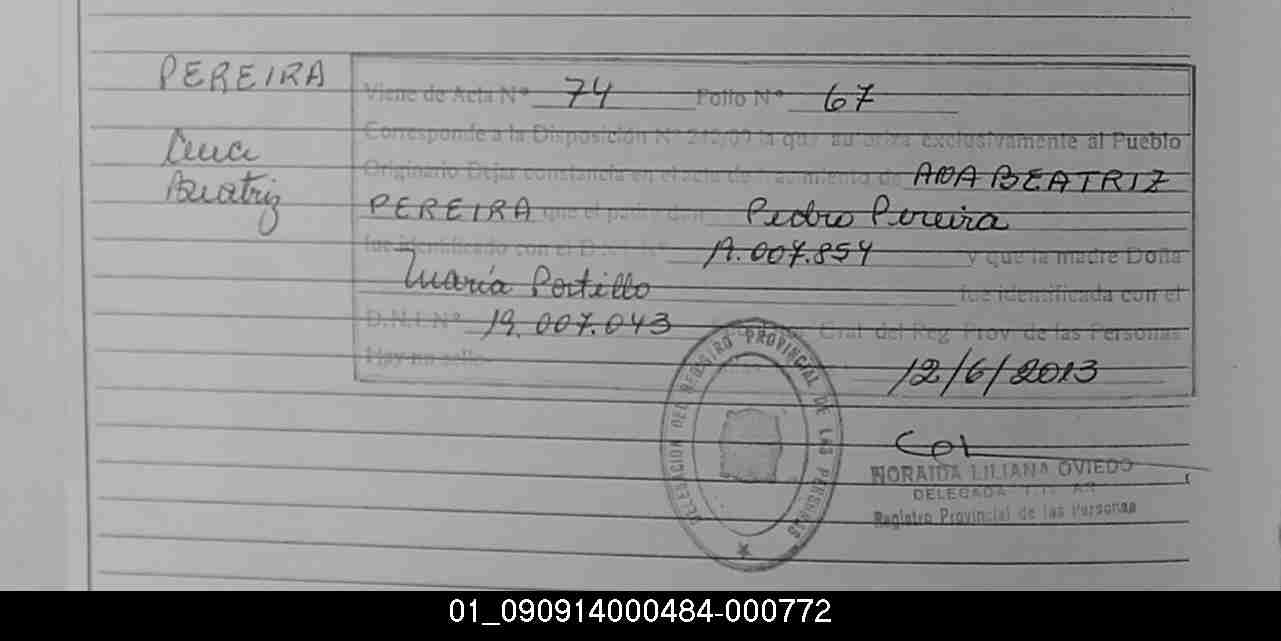 PEREIRA
Ana
Beatriz
Viene de Acta Nº 74 Folio Nº 67
Corresponde a la Disposición Nº 242/09 la que autoriza exclusivamente al Pueblo
Originario Dejar constancia en el acta de nacimiento de ANA BEATRIZ
PEREIRA que el padre don Pedro Pereira
fue identificado con el D.N.I. Nº 19.007.854 y que la madre Doña
María Portillo fue identificada con el
D.N.I. Nº 19.007.043 Gral del Reg. Prov. de las Personas
Hay un sello
12/6/2013
DELEGACION DEL REGISTRO PROVINCIAL DE LAS PERSONAS
NORAIDA LILIANA OVIEDO
DELEGADA
Registro Provincial de las Personas
01_090914000484-000772